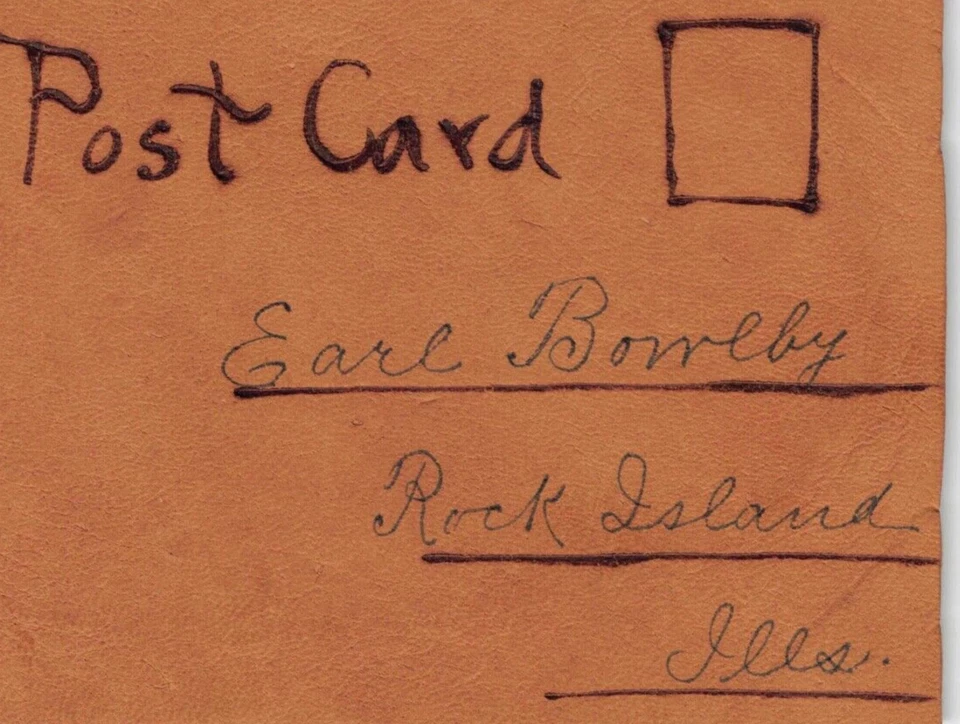 Post Card
Earl Bowlby
Rock Island
Ills.